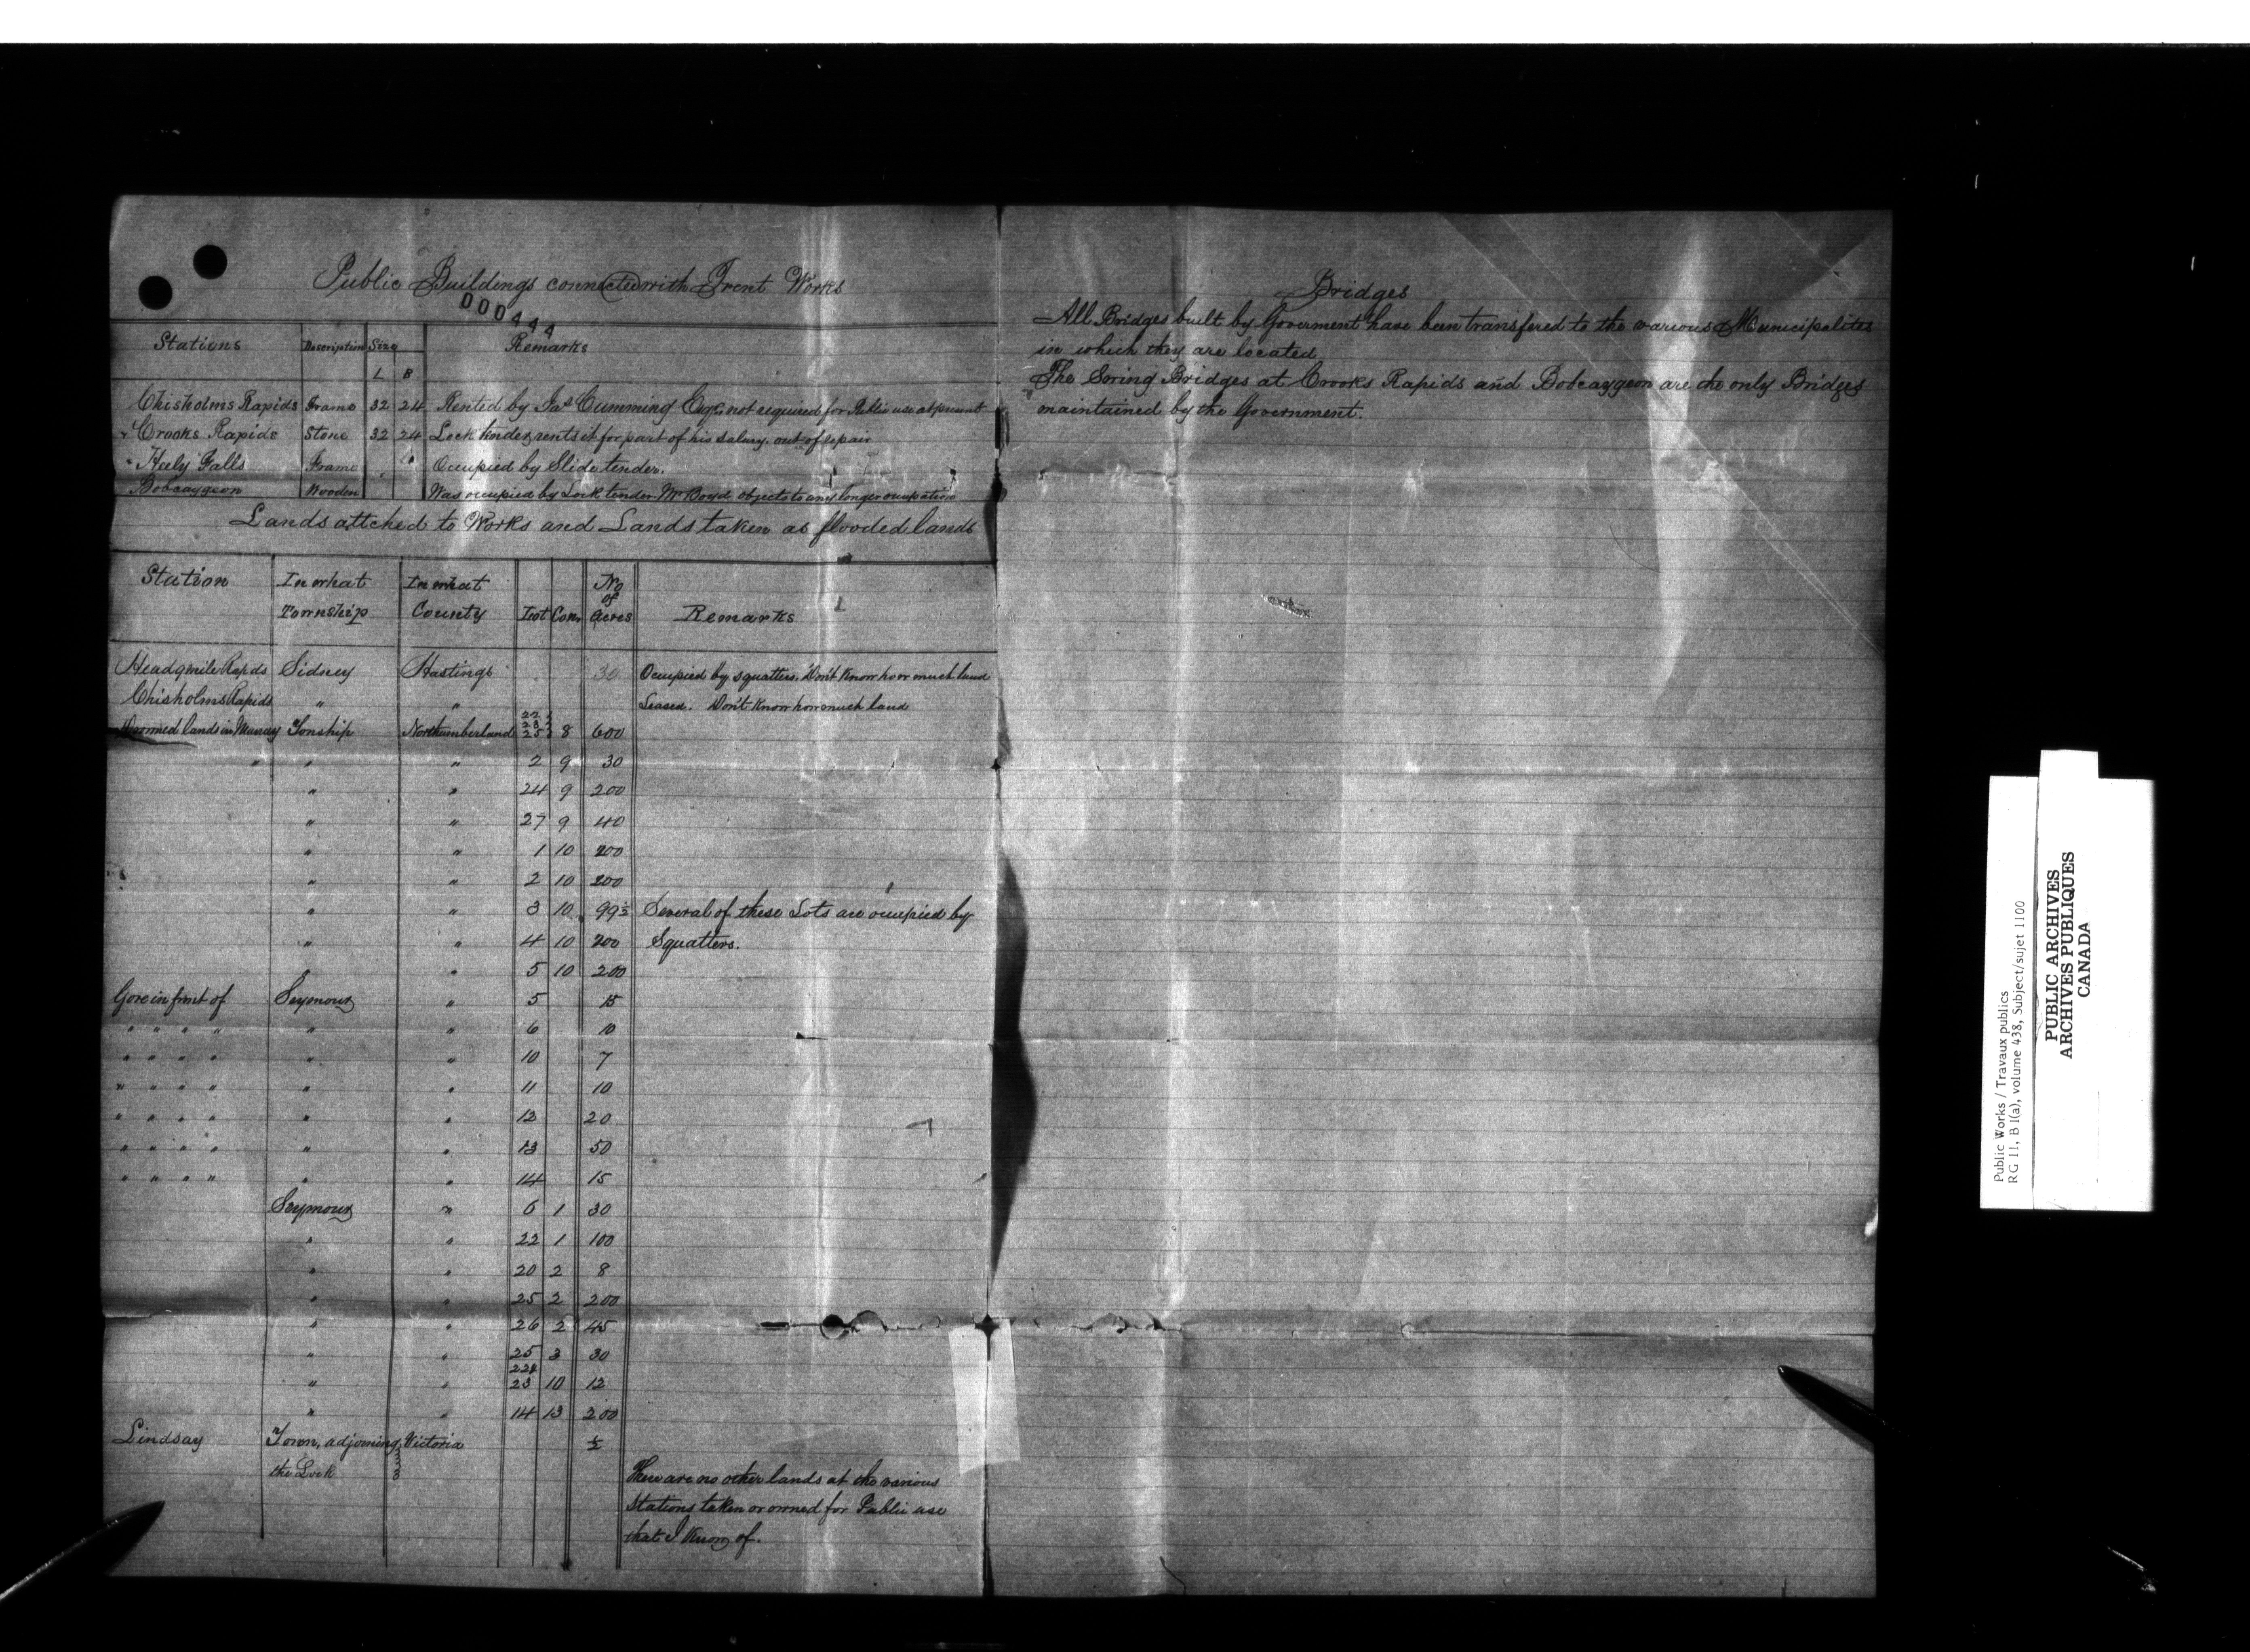 Public Buildings connected with Trent Works
000444
Stations Description Size Remarks
L B
Chisholms Rapids Frame 32 24 Rented by Jas Cumming Esqr. not required for Public use at present
" Crooks Rapids Stone 32 24 Lock tender rents it for part of his salary. out of repair
" Heely Falls Frame Occupied by Slide tender.
Bobcaygeon Wooden Was occupied by Lock tender. Mr Boyd objects to any longer ocupation
Lands attched to Works and Lands taken as flooded lands
Station In what Township In what County Lot Con. No of Acres Remarks
Head 9 mile Rapids Sidney Hastings 30 Occupied by squatters. Don't Know how much land
Chisholms Rapids " " Leased. Don't Know how much land
Drowned lands in Murray Tonship Northumberland 22 23 25 8 600
" " " 2 9 30
" " 24 9 200
" " 27 9 40
" " 1 10 200
" " 2 10 200
" " 3 10 99½ Several of these Lots are occupied by
" " 4 10 200 Squatters.
" " 5 10 200
Gore in front of Seymour " 5 15
" " " " " " 6 10
" " " " " " 10 7
" " " " " " 11 10
" " " " " " 12 20
" " " " " " 13 50
" " " " " " 14 15
Seymour " 6 1 30
" " 22 1 100
" " 20 2 8
" " 25 2 200
" " 26 2 45
" " 25 3 30
" " 22& 23 10 12
" " 14 13 200
Lindsay Town, adjoining Victoria ½
the Lock
There are no other lands at the various
Stations taken or owned for Public use
that I Know of.
Bridges
All Bridges built by Goverment have been transfered to the various Municipalites
in which they are located
The Swing Bridges at Crooks Rapids and Bobcaygeon are the only Bridges
maintained by the Government.
Public Works / Travaux publics
RG 11, B 1(a), volume 438, Subject/sujet 1100
PUBLIC ARCHIVES
ARCHIVES PUBLIQUES
CANADA